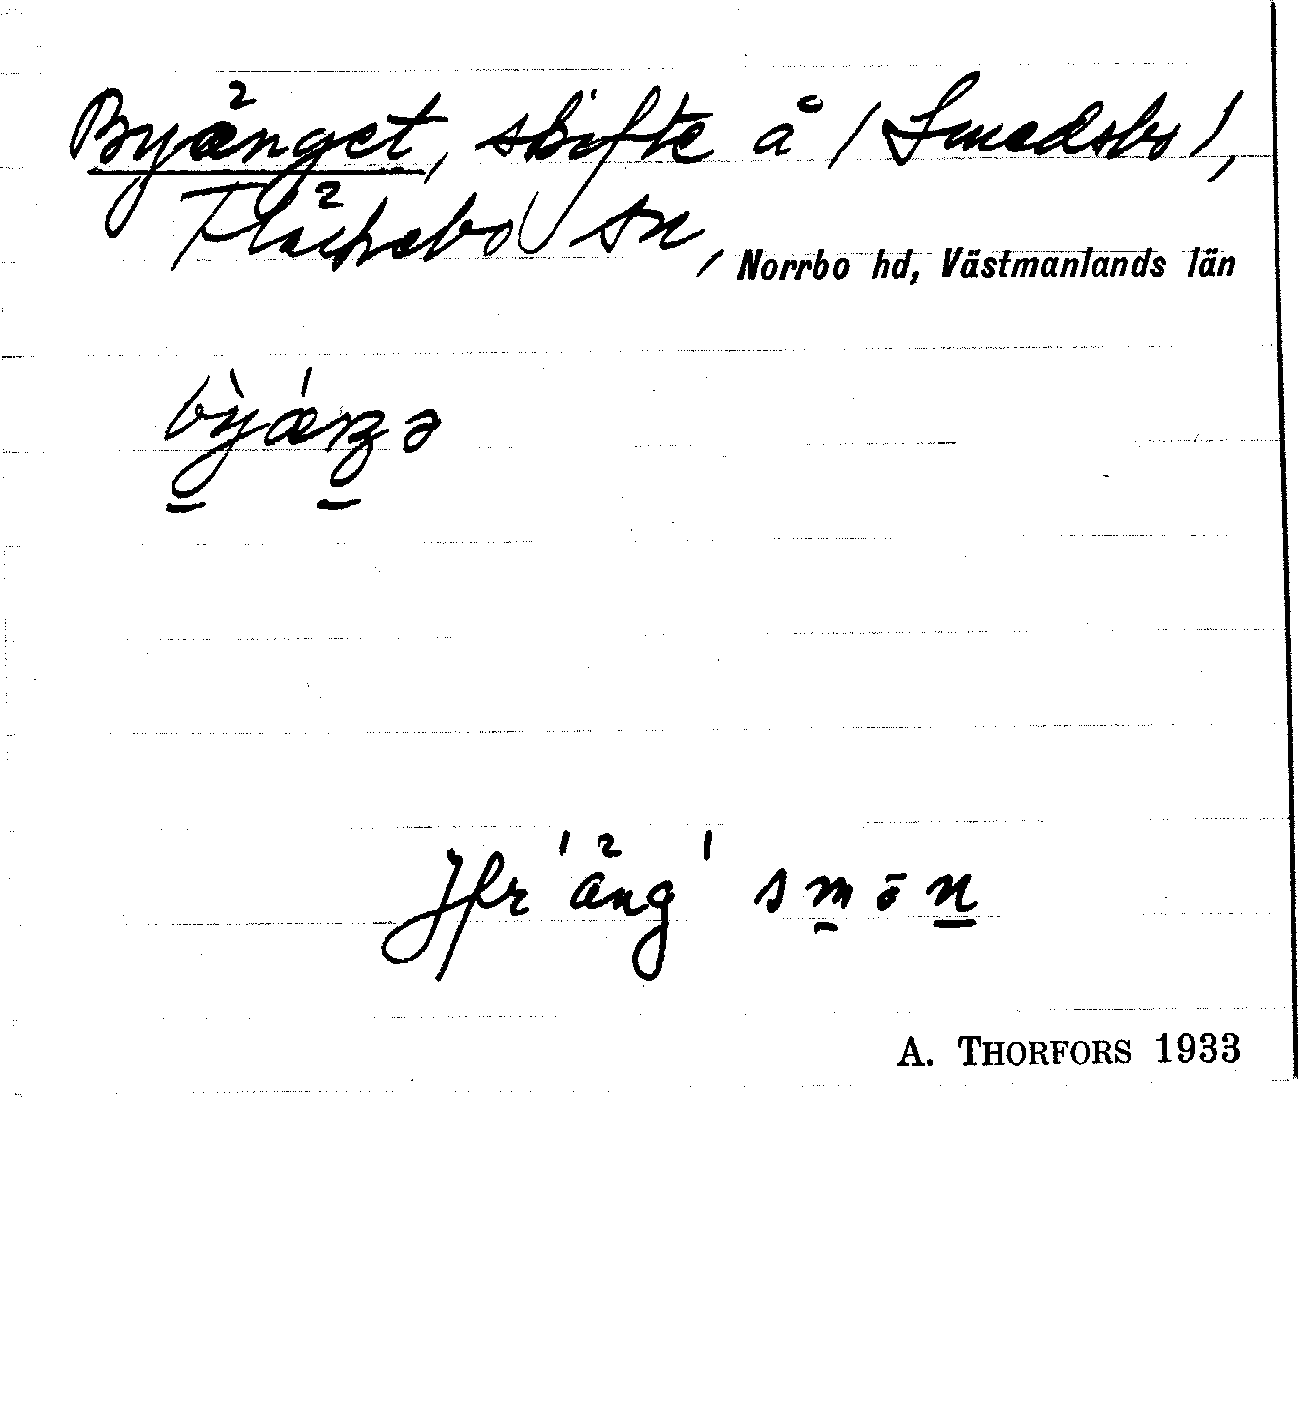 Byänget, skifte å /Smedsbo/,
Fläckebo sn, Norrbo hd, Västmanlands län
bỳǽŋə
Jfr 'äng' smōn
A. THORFORS 1933